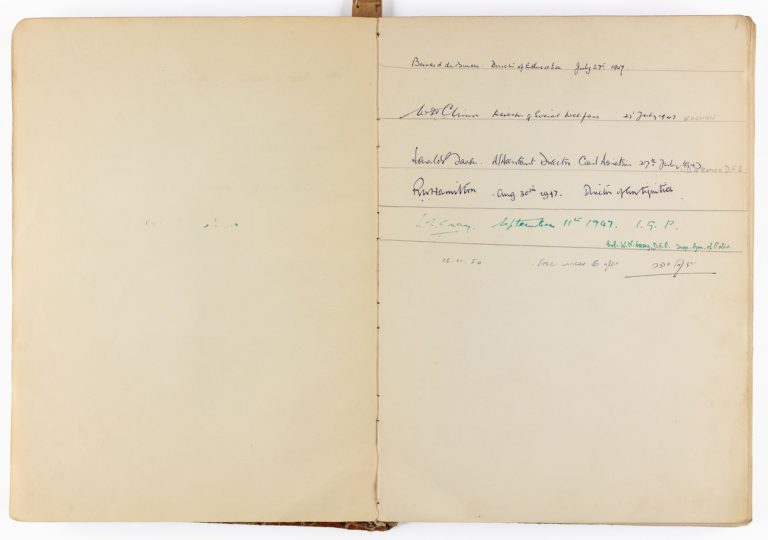 Bernard de Bunsen Director of Education July 27th 1947
W H Chinn Director of Social Welfare 21st July 1947
Assistant Director Civil Aviation 27th July 1947
D.F.C.
R W Hamilton Aug 30th 1947. Director of Antiquities
Gray. September 11th 1947. I.G.P.
Col. W.N. Gray, D.S.O. Insp. Gen. of Police
15.11.50